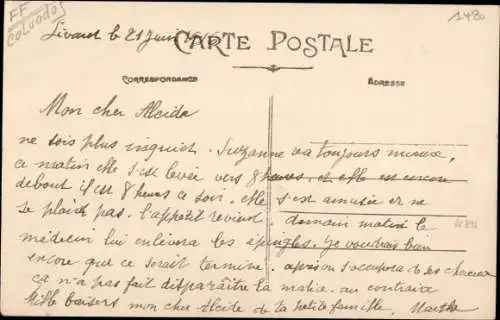 FF
Calvados
1480
Livarot le 21 Juin
CARTE POSTALE
CORRESPONDANCE
ADRESSE
Mon cher Alcide
ne sois plus inquiet. Suzanne va toujours mieux,
ce matin elle s'est levée vers 8 heures, et elle est encore
debout il est 8 heures ce soir. elle s'est amusée et ne
se plaint pas. l'appétit revient. demain matin le
médecin lui enlèvera les épingles. je voudrais bien
encore que ce serait terminé. après on s'occupera de ses cheveux
ça n'a pas fait disparaître la malice. au contraire
Mille baisers mon cher Alcide de la petite famille. Marthe